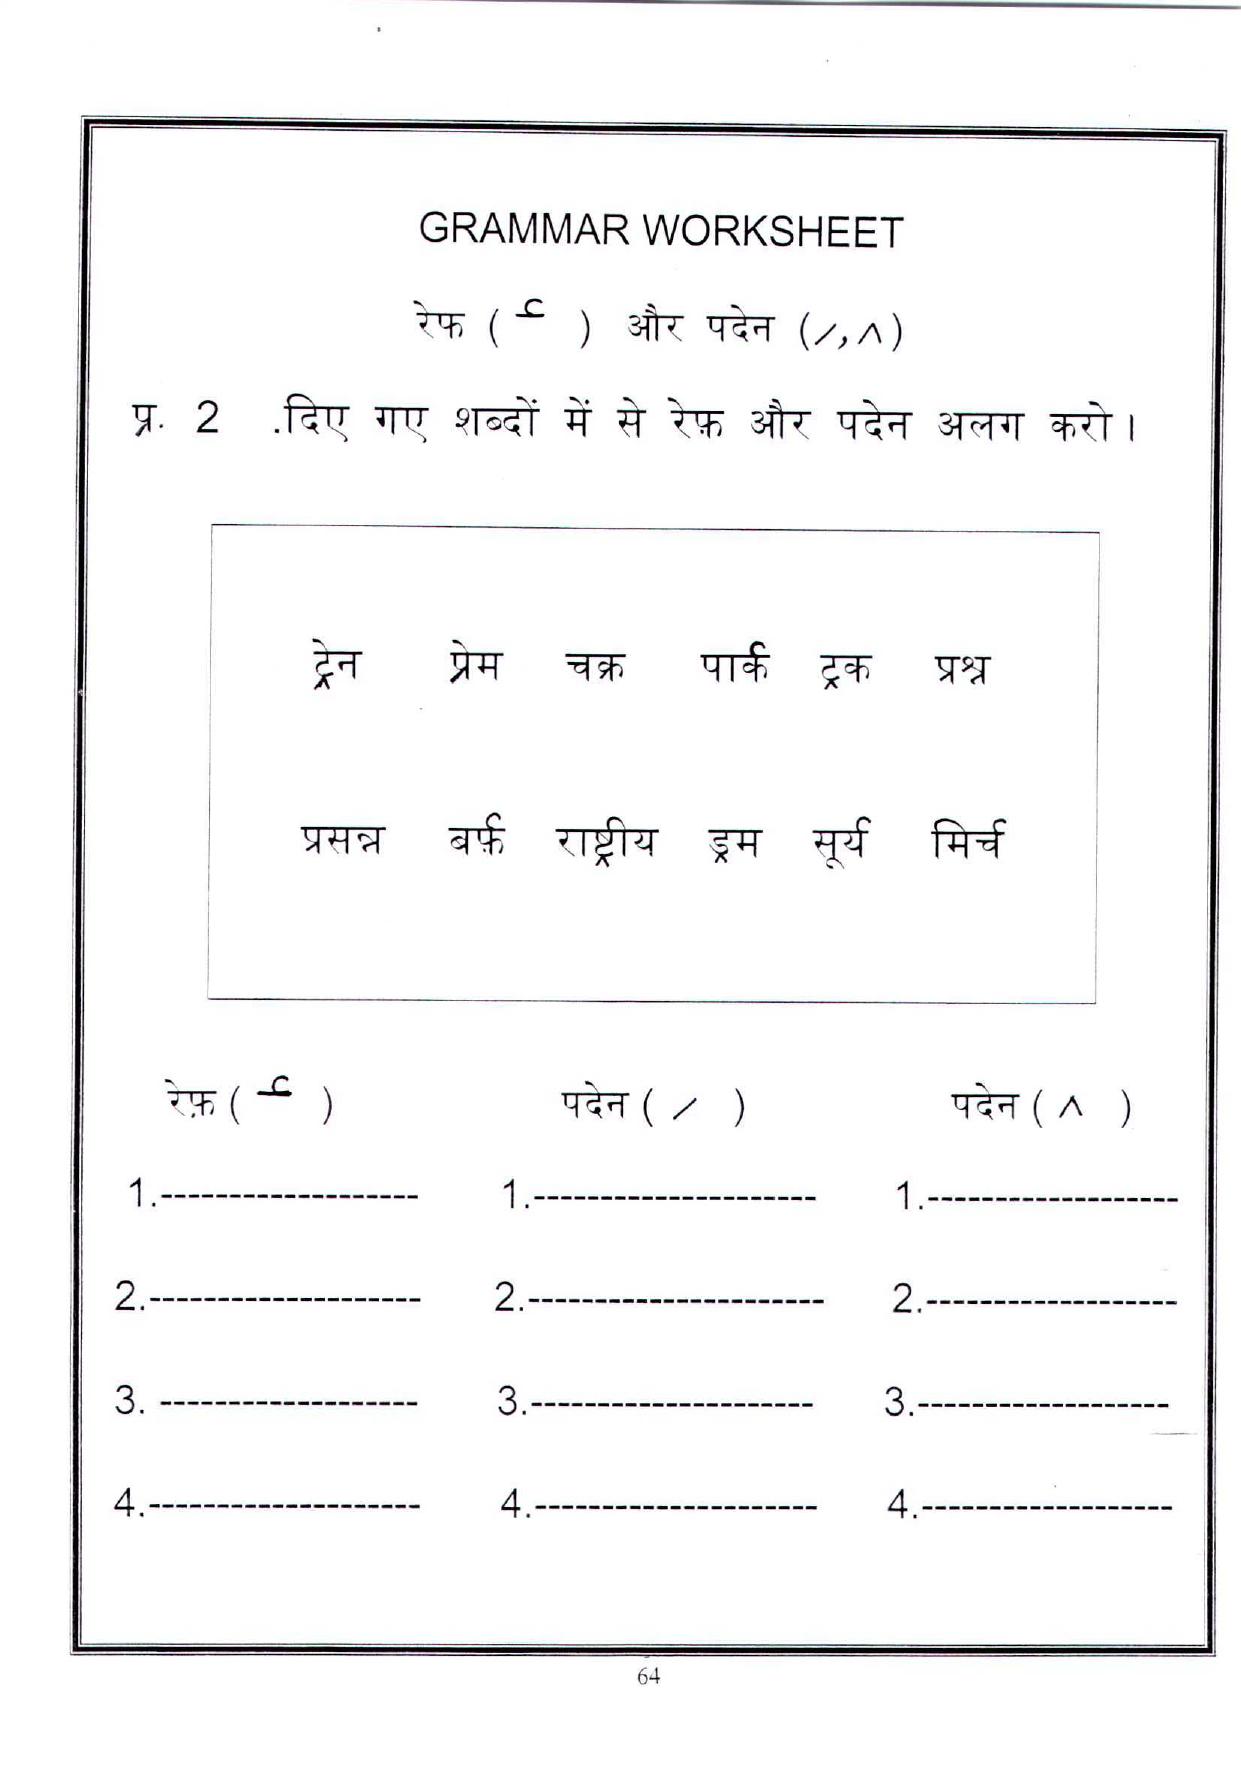 GRAMMAR WORKSHEET
रेफ ( र्‍ ) और पदेन (⸝,^)
प्र. 2 .दिए गए शब्दों में से रेफ़ और पदेन अलग करो।
ट्रेन प्रेम चक्र पार्क ट्रक प्रश्न
प्रसन्न बर्फ़ राष्ट्रीय ड्रम सूर्य मिर्च
रेफ़ ( र्‍ ) पदेन ( ⸝ ) पदेन ( ^ )
1.------------------- 1.--------------------- 1.-------------------
2.-------------------- 2.---------------------- 2.-------------------
3. ------------------- 3.--------------------- 3.-------------------
4.-------------------- 4.--------------------- 4.-------------------
64